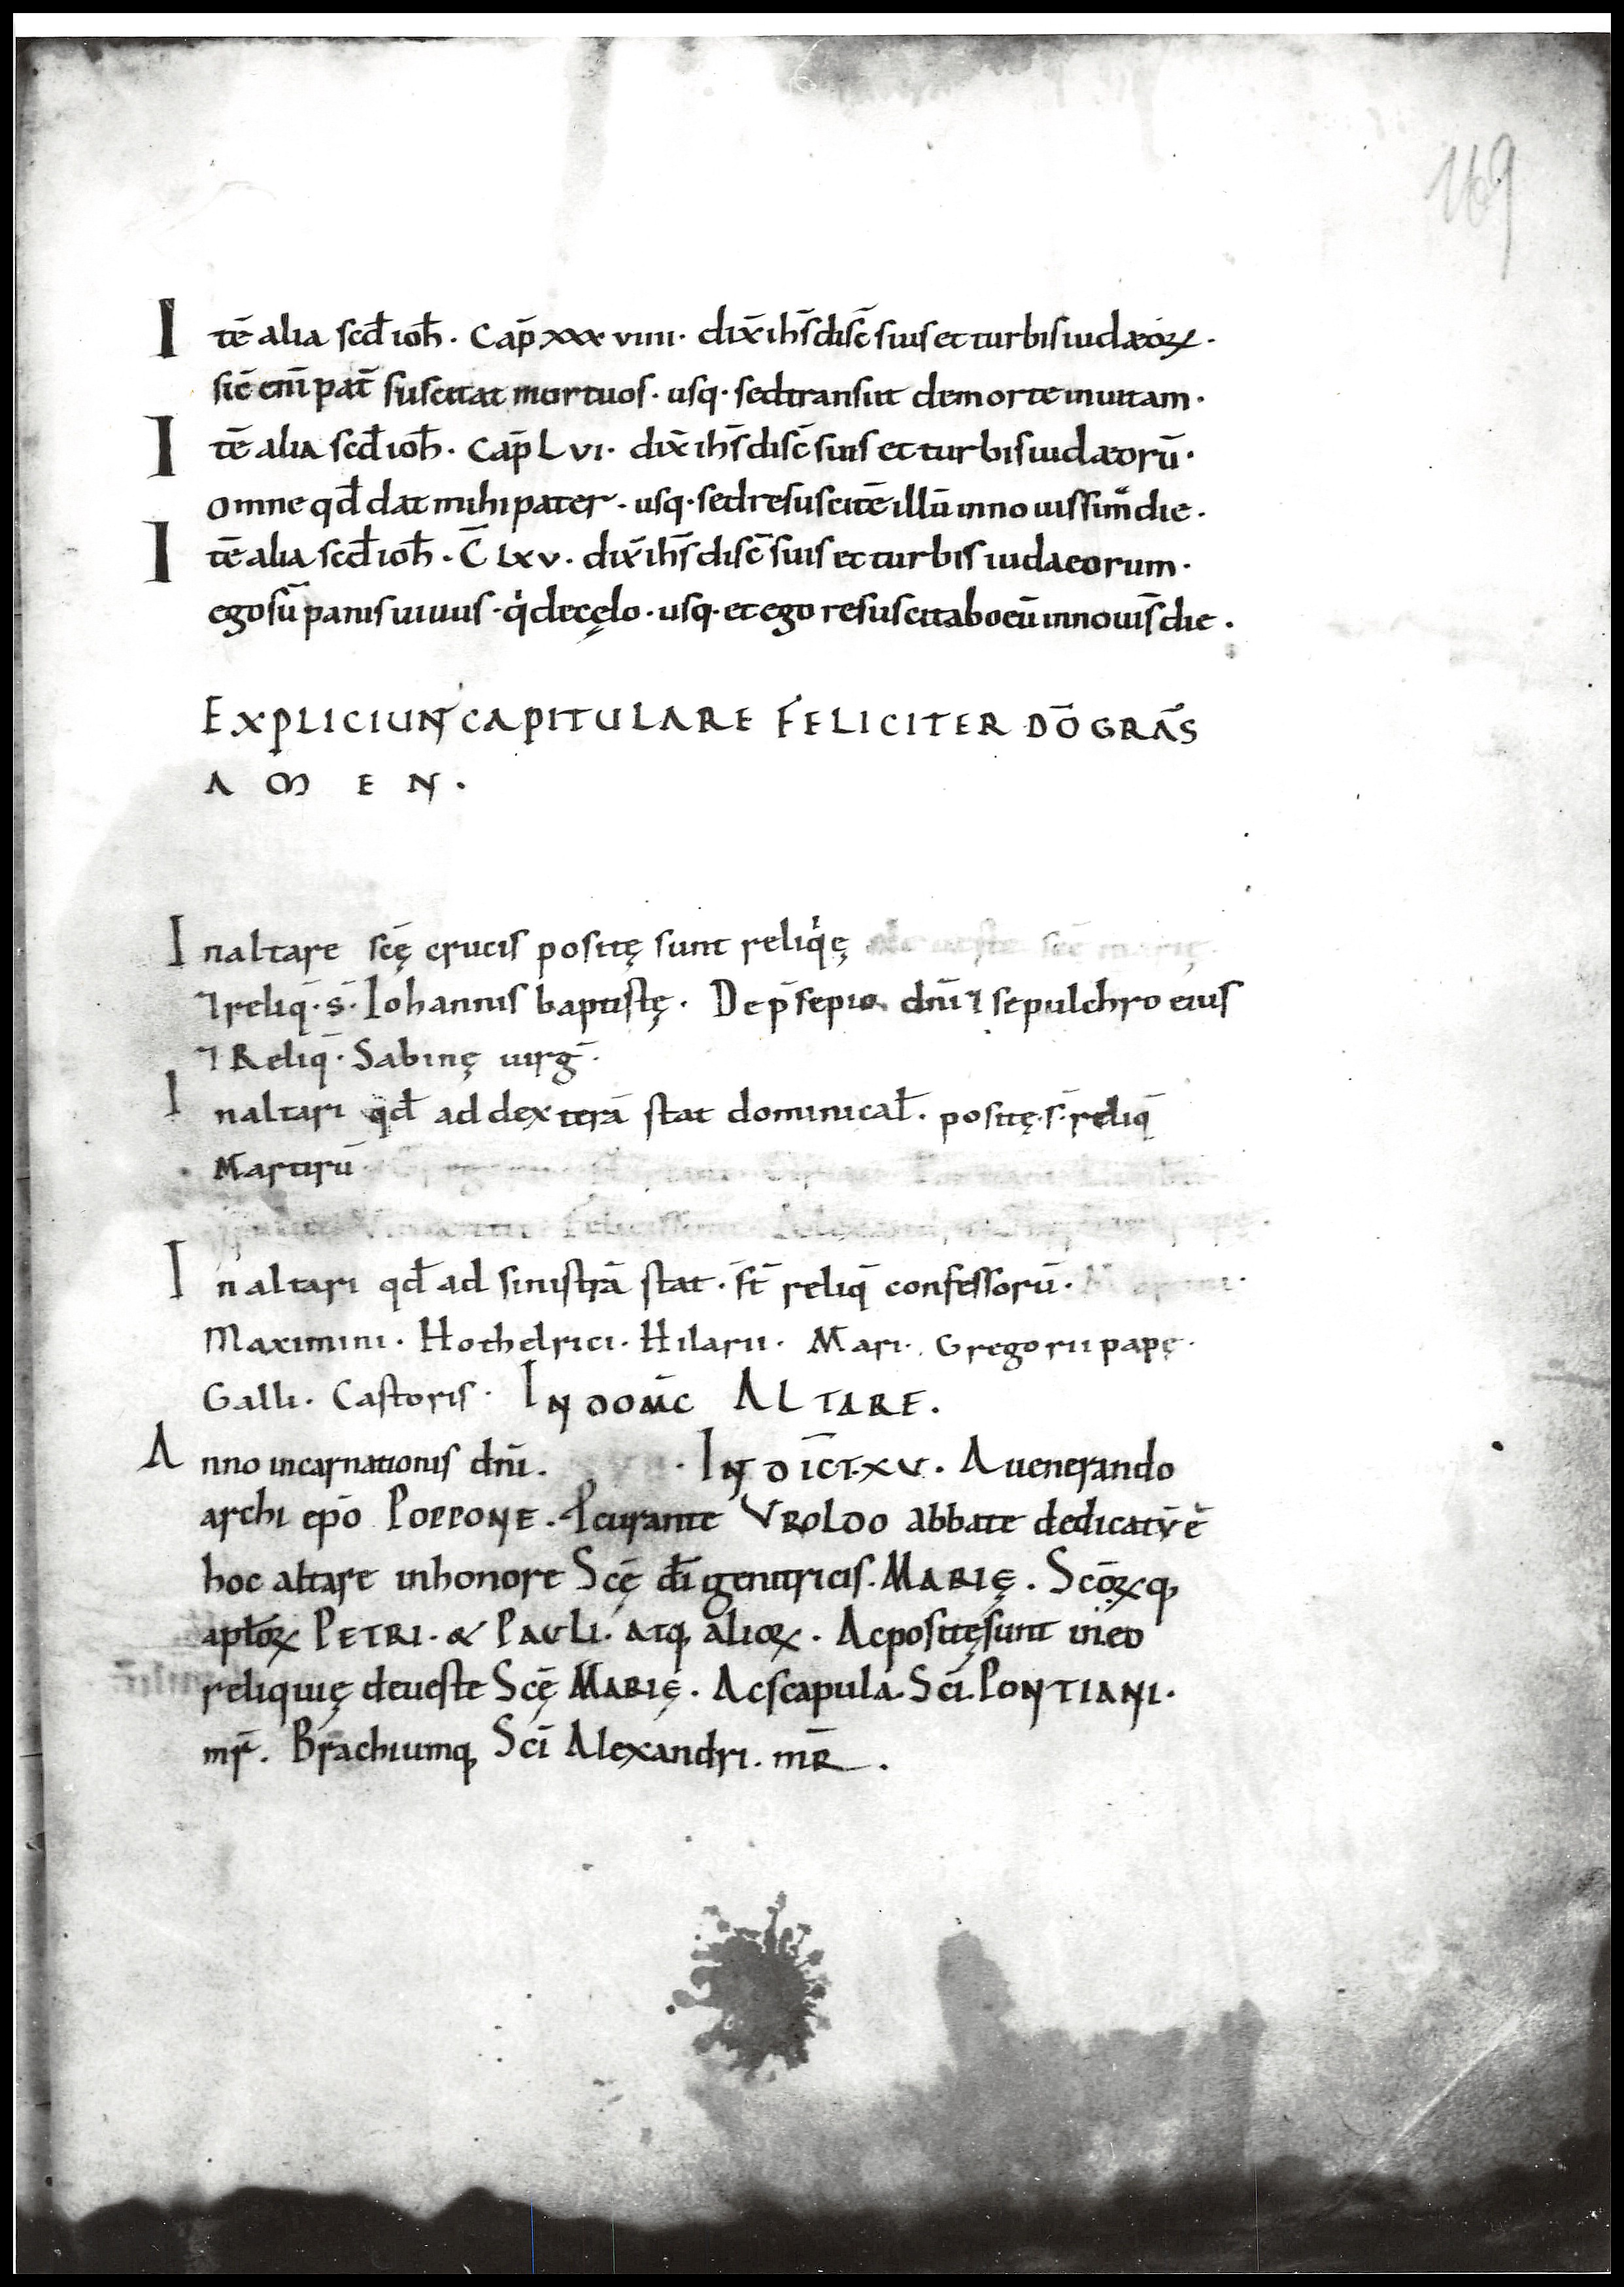 169
Itē alia scd̄ ioh̄. Cap̄ xxxviiii. dix̄ ihs̄ disc̄ suis et turbis iudæoꝝ.
sic̄ eni̅ pat̄ suscitat mortuos. usq. sed transiit de morte in uitam.
Itē alia scd̄ ioh̄. Cap̄ Lvi. dix̄ ihs̄ disc̄ suis et turbis iudæorū.
omne qd̄ dat mihi pater. usq. sed resuscitē illū in nouissim̄ die.
Itē alia scd̄ ioh̄. C̄ Lxv. dix̄ ihs̄ disc̄ suis et turbis iudaeorum.
ego sū panis uiuus. qͥ de cęlo. usq. et ego resuscitabo eū in nouis̄ die.
EXPLICIUNT CAPITULARE FELICITER DŌ GRĀS
AMEN.
In altare scę̄ crucis positę sunt reliqͥę scē marię.
⁊ reliq̄. s̄. Iohannis baptistę. De p̄sepio dn̄i ⁊ sepulchro eius
⁊ Reliq̄. Sabinę uirḡ.
In altari qd̄ ad dexterā stat dominical̄. positę. s̄. reliq̄
Martirū
In altari qd̄ ad sinistrā stat. st̄ reliq̄ confessorū.
Maximini. Hothelrici. Hilarii. Mari. Gregorii papę.
Galli. Castoris. IN DOM̄C ALTARE.
Anno incarnationis dn̄i. INDIC̄T. XV. A uenerando
archi ep̄o POPPONE. ꝓcurante VROLDO abbate dedicatv̄ ē
hoc altare in honore Scę̄ dī genitricis. MARIĘ. Scōꝝq,
apl̄oꝝ PETRI. & PAULI. atq, alioꝝ. Ac positę sunt in eo
reliquię de ueste Scę̄ MARIĘ. Ac scapula Scī. PONTIANI.
mr̄. Brachiumq, Scī Alexandri. mR̄.